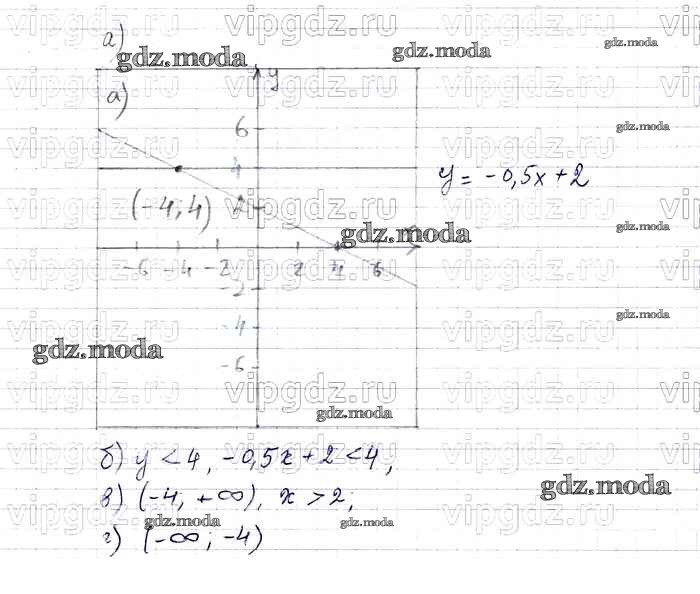 а)
а) y
6
4
y = -0,5x+2
2
(-4;4)
-6 -4 -2 2 4 6
-2
-4
-6
б) y < 4, -0,5x + 2 < 4,
в) (-4; +∞), x > 2;
г) (-∞; -4)
vipgdz.ru
gdz.moda